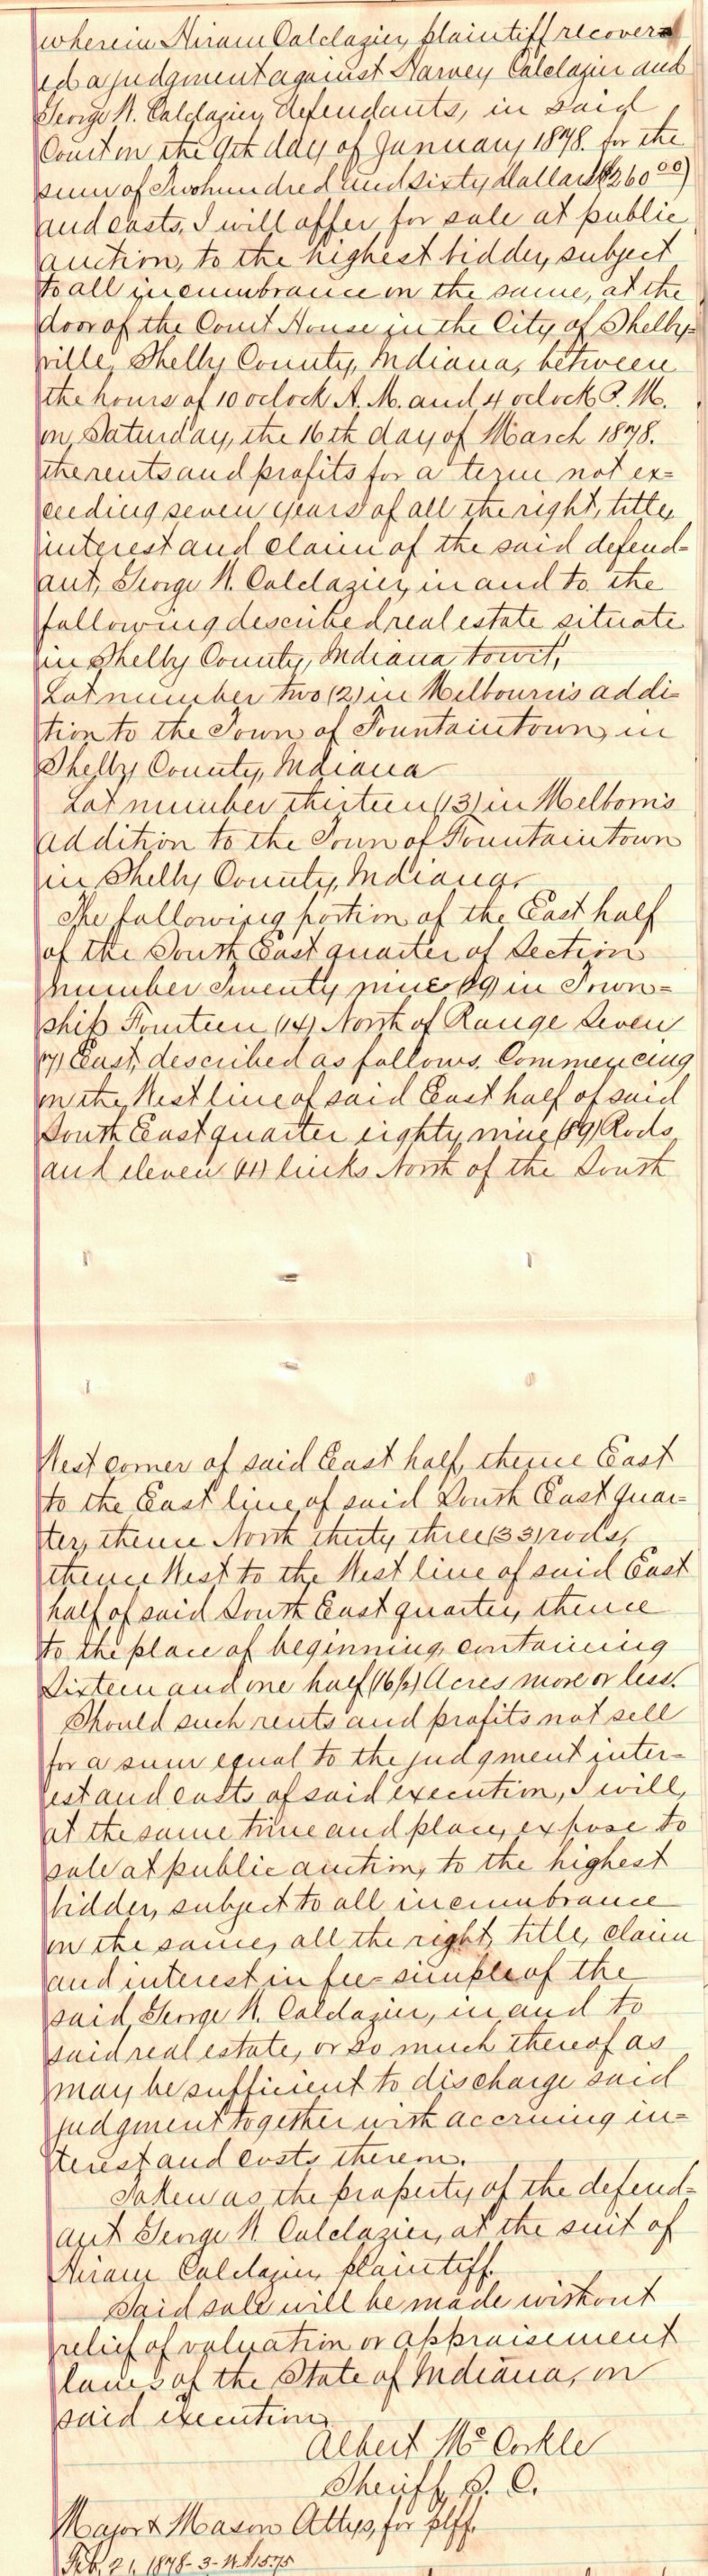 wherein Hiram Calclazier, plaintiff recover=
ed a judgment against Harvey Calclazier and
George W. Calclazier, defendants, in said
Court on the 9th day of January 1878. for the
sum of Two hundred and sixty Dollars ($260.00)
and costs, I will offer for sale at public
auction, to the highest bidder, subject
to all incumbrance on the same, at the
door of the Court House in the City of Shelby=
ville, Shelby County, Indiana, between
the hours of 10 oclock A.M. and 4 oclock P.M.
on, Saturday, the 16th day of March 1878.
the rents and profits for a term not ex=
ceeding seven years of all the right, title,
interest and claim of the said defend=
ant, George W. Calclazier, in and to the
following described real estate situate
in Shelby County, Indiana towit,
Lot number two (2) in Melbourn's addi=
tion to the Town of Fountaintown, in
Shelby County, Indiana
Lot number thirteen (13) in Melborn's
addition to the Town of Fountaintown
in Shelby County, Indiana.
The following portion of the East half
of the South East quarter of Section
number Twenty nine (29) in Town=
ship Fourteen (14) North of Range Seven
(7) East, described as follows. Commencing
on the West line of said East half of said
South East quarter eighty nine (89) Rods
and eleven (11) links North of the South
West corner of said East half, thence East
to the East line of said South East quar=
ter, thence North thirty three (33) rods,
thence West to the West line of said East
half of said South East quarter, thence
to the place of beginning, containing
Sixteen and one half (16½) Acres more or less.
Should such rents and profits not sell
for a sum equal to the judgment inter=
est and costs of said execution, I will,
at the same time and place, expose to
sale at public auction, to the highest
bidder, subject to all incumbrance
on the same, all the right, title, claim
and interest in fee=simple of the
said, George W. Calclazier, in and to
said real estate, or so much thereof as
may be sufficient to discharge said
judgment together with accruing in=
terest and costs thereon.
Taken as the property of the defend=
ant George W Calclazier, at the suit of
Hiram Calclazier, plaintiff.
Said sale will be made without
relief of valuation or appraisement
laws of the State of Indiana, on
said execution.
Albert McCorkle
Sheriff, S. C.
Major & Mason Attys, for plff.
Feb. 21, 1878-3-W $15.75